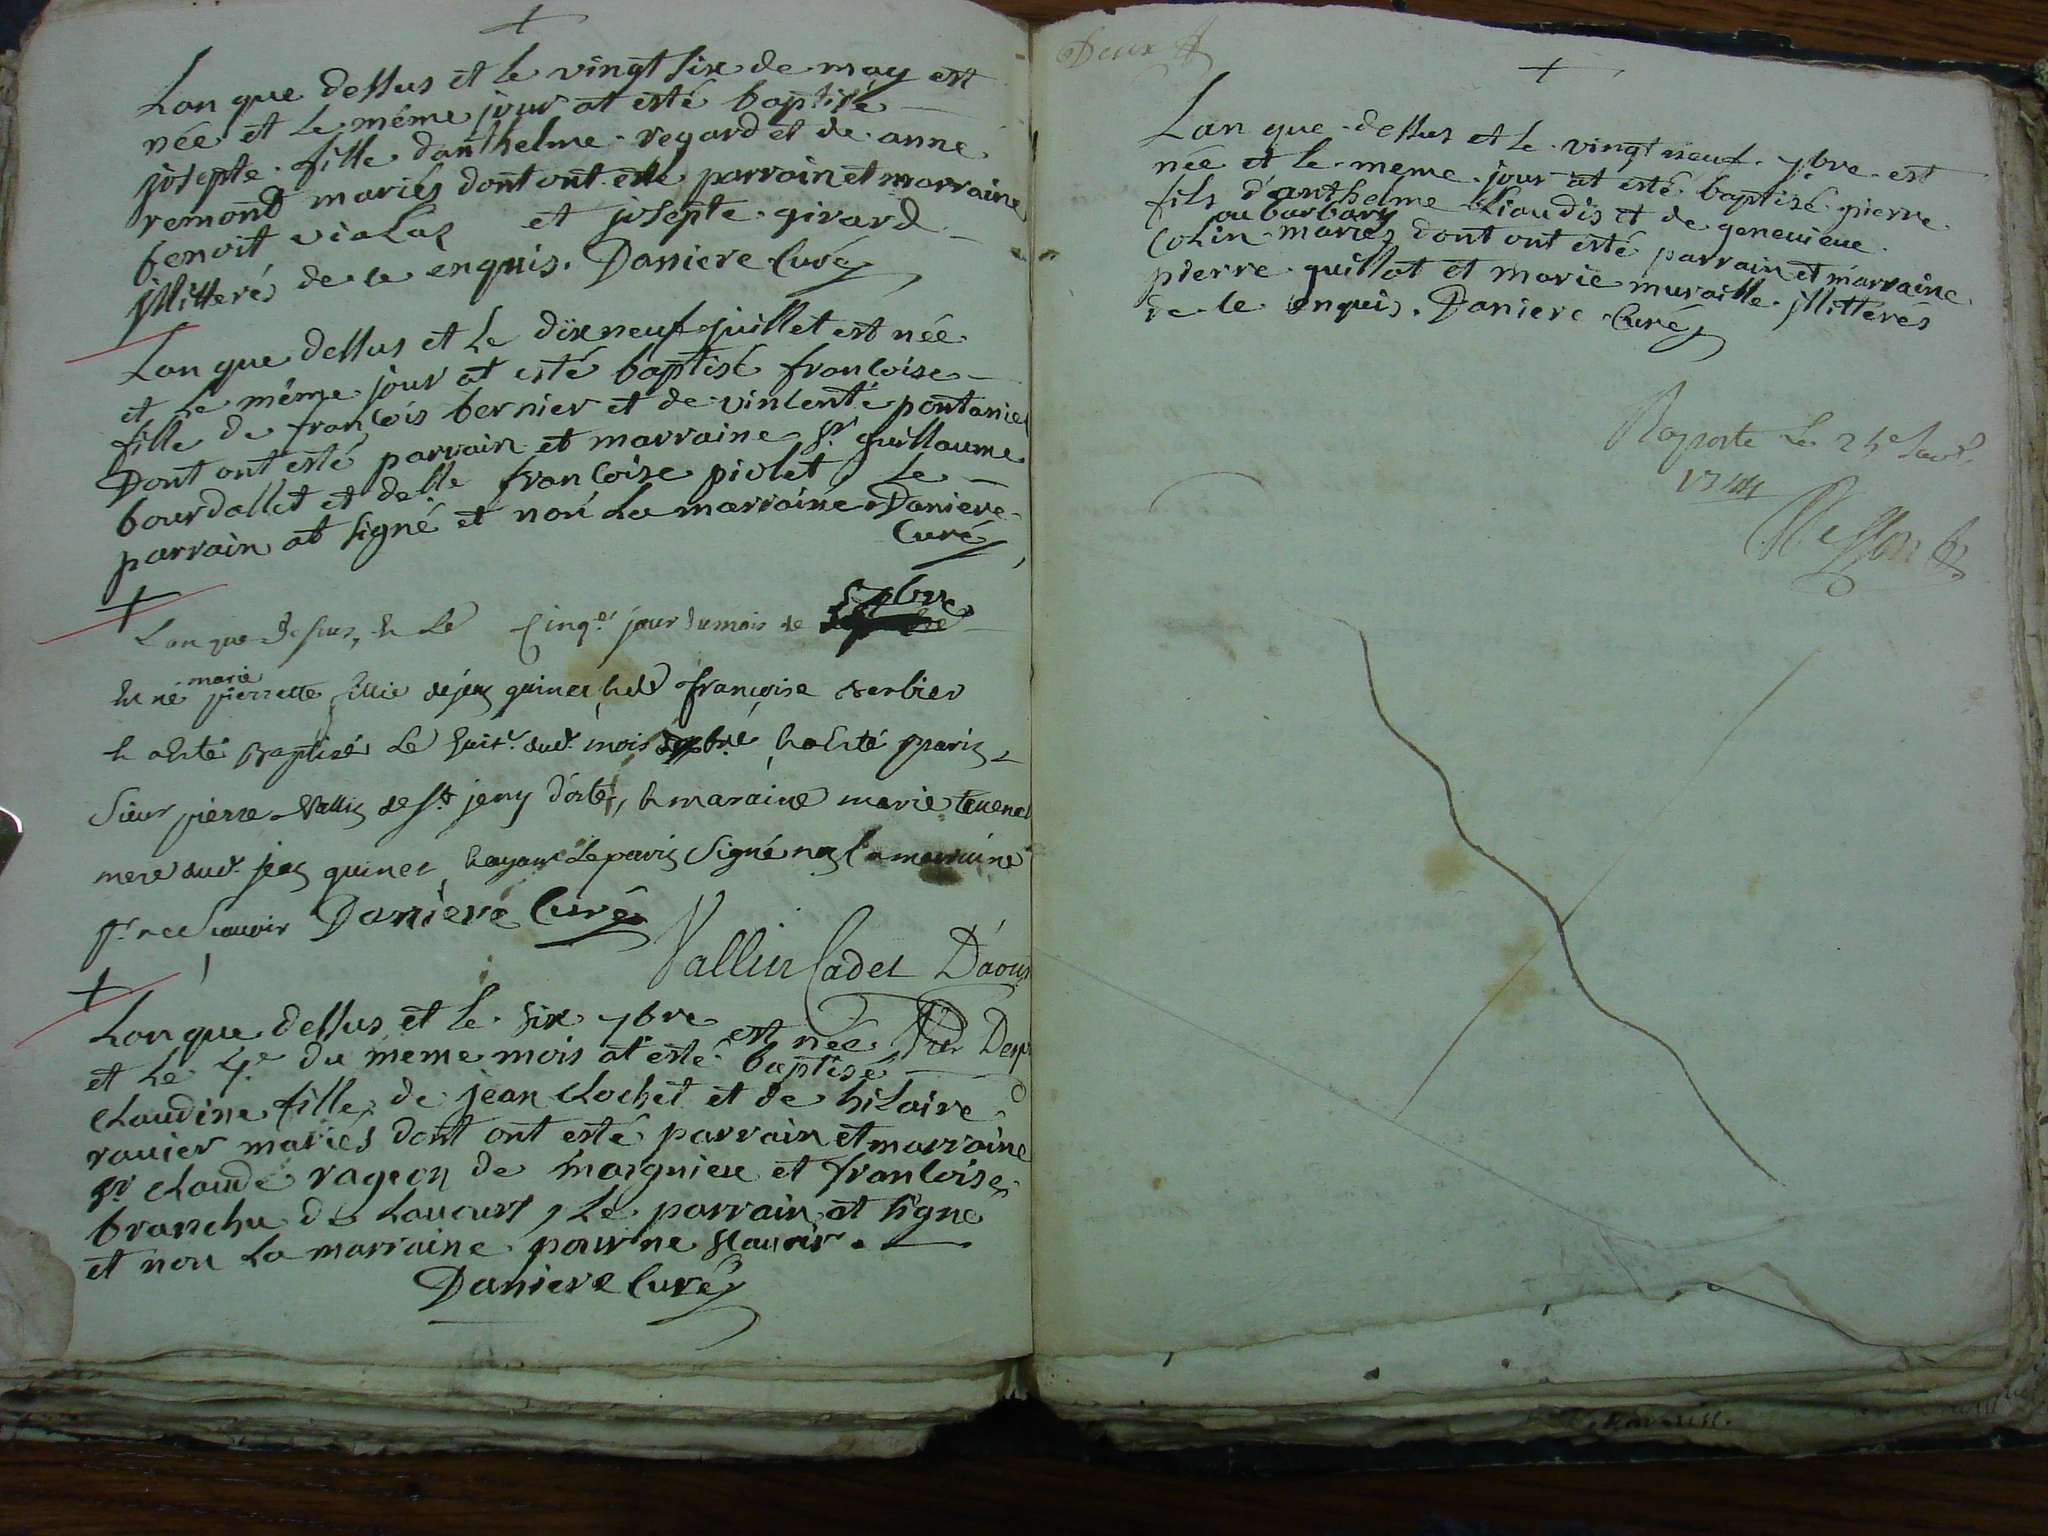 Lan que dessus et le vingt six de may est
née et le même jour at esté baptisé
josepte fille danthelme regard et de anne
remond mariés dont ont esté parrain et marraine
benoit violas et josepte girard
jllitterés de ce enquis. Daniere Curé
Lan que dessus et le dixneuf juillet est née
et le même jour at esté baptisé francoise
fille de françois bernier et de vincente pontaniel
Dont ont esté parrain et marraine sr guillaume
bourdallet et delle francoise piolet, le
parrain at signé et non la marraine Daniere
Curé
Lan que dessus, et le cinqe jour du mois de 7bre
marie
Est né pierrette fillie de jean quinet et de françoise verbier
et a esté Baptisée le huitr dudt mois et a esté parin
Sieur pierre Vallin de st jeny d'oste, la maraine marie tevenet
mere dudt jean quinet, et ayant le parin signé non la marraine
pr ne scauoir Daniere Curé
Vallin Cadet D'aoust
Lan que dessus et le six 7bre est née
et le 7e du meme mois at esté baptisé
claudine fille de jean clochet et de hilaire
rauier mariés dont ont esté parrain et marraine
sr claude rageon de maignieu et francoise
branchu de Laucust, le parrain at signe
et non la marraine pour ne scauoir.
Daniere Curé
Deux
Lan que dessus et le vingt neuf 7bre est
née et le meme jour at esté baptisé pierre
fils d'anthelme Liaudis et de geneuieue
ou barbary
Colin mariés dont ont esté parrain et marraine
pierre quillot et marie muraille jllitterés
de ce enquis. Daniere Curé
Raporté Le
1744